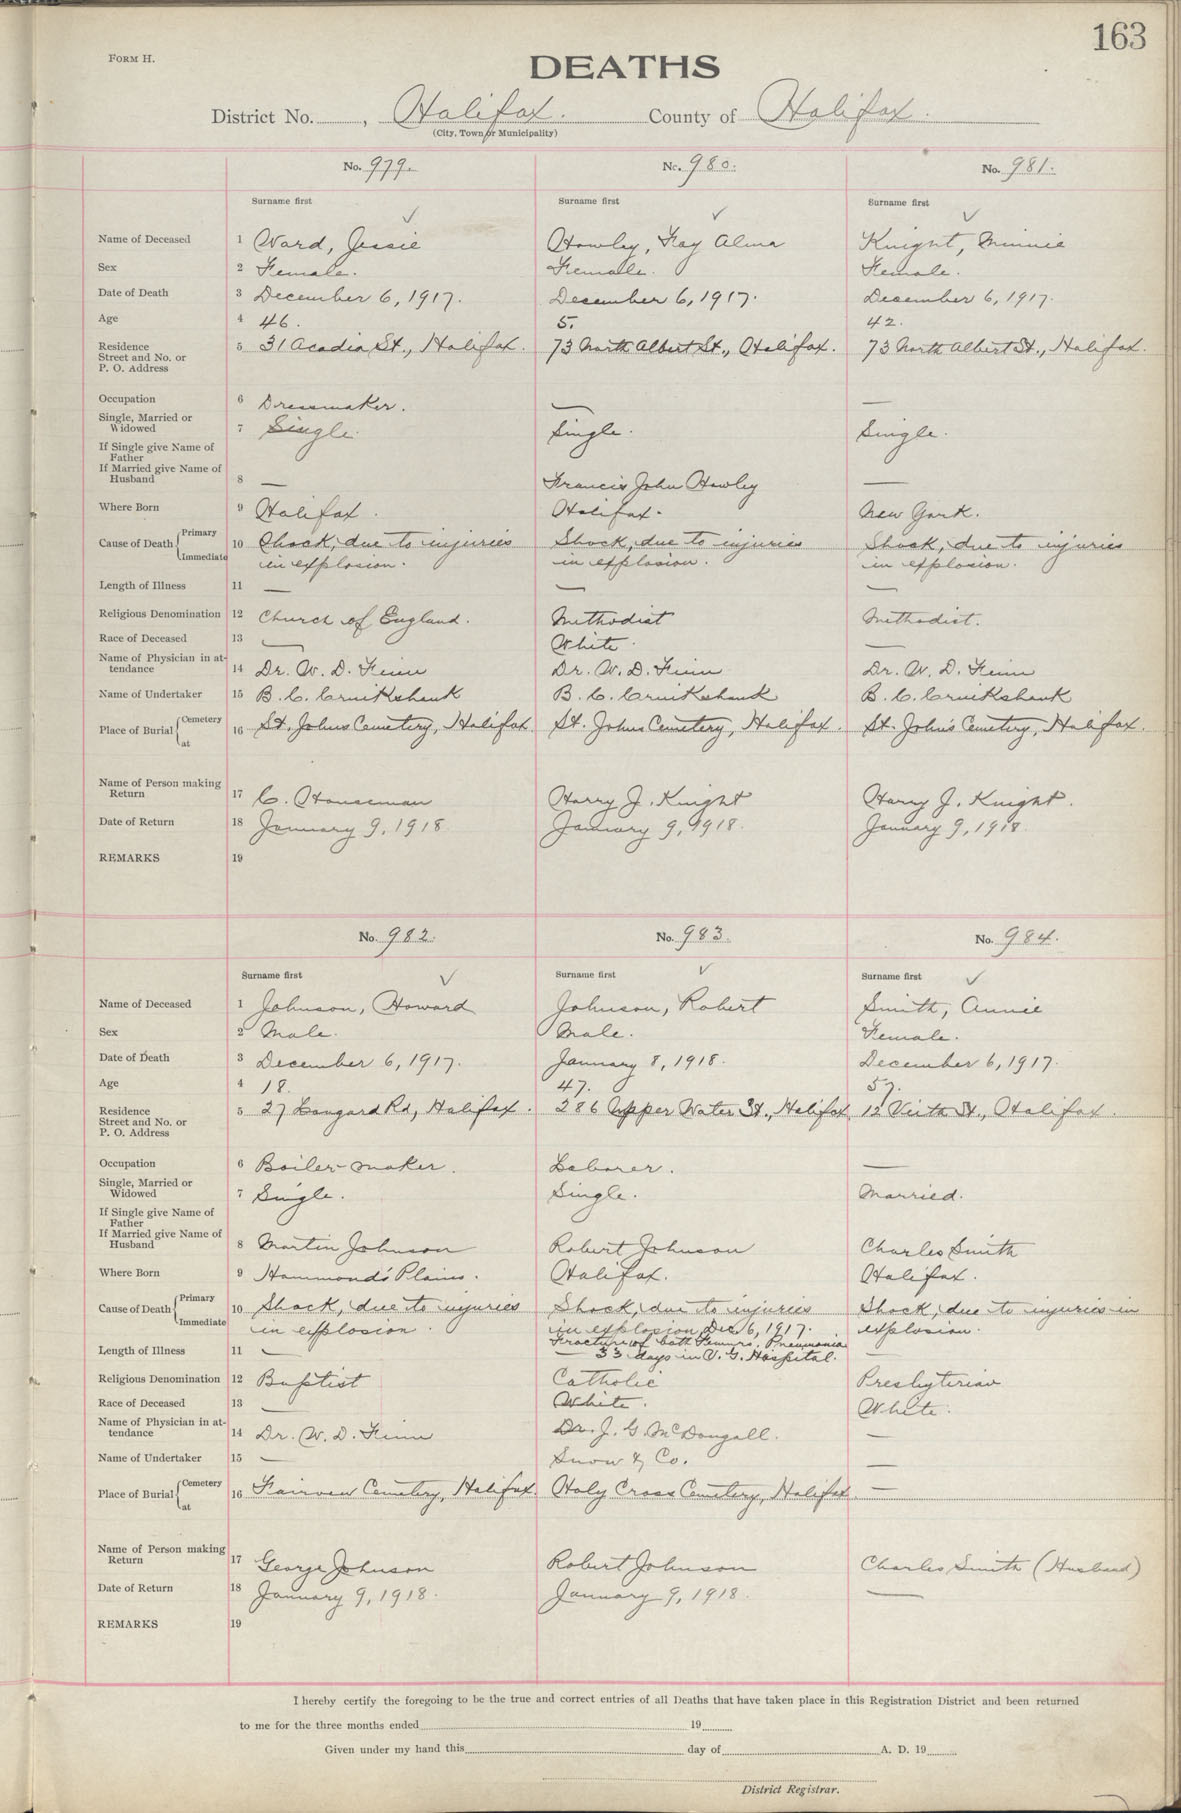 163
FORM H.
DEATHS
District No. , Halifax. County of Halifax.
(City, Town or Municipality)
No. 979. No. 980. No. 981.
Surname first Surname first Surname first
Name of Deceased 1 Ward, Jessie Howley, Fay Alma Knight, Minnie
Sex 2 Female. Female. Female.
Date of Death 3 December 6, 1917. December 6, 1917. December 6, 1917.
Age 4 46. 5. 42.
Residence 5 31 Acadia St., Halifax. 73 North Albert St., Halifax. 73 North Albert St., Halifax.
Street and No. or
P. O. Address
Occupation 6 Dressmaker. — —
Single, Married or
Widowed 7 Single. Single. Single.
If Single give Name of
Father
If Married give Name of
Husband 8 — Francis John Howley —
Where Born 9 Halifax. Halifax. New York.
Cause of Death { Primary Immediate 10 Shock, due to injuries Shock, due to injuries Shock, due to injuries
in explosion. in explosion. in explosion.
Length of Illness 11 — — —
Religious Denomination 12 Church of England. Methodist Methodist.
Race of Deceased 13 — White. —
Name of Physician in at-
tendance 14 Dr. W. D. Finn Dr. W. D. Finn Dr. W. D. Finn
Name of Undertaker 15 B. C. Cruikshank B. C. Cruikshank B. C. Cruikshank
Place of Burial { Cemetery at 16 St. Johns Cemetery, Halifax. St. Johns Cemetery, Halifax. St. John's Cemetery, Halifax.
Name of Person making
Return 17 C. Houseman Harry J. Knight Harry J. Knight.
Date of Return 18 January 9, 1918. January 9, 1918. January 9, 1918.
REMARKS 19
No. 982. No. 983. No. 984.
Surname first Surname first Surname first
Name of Deceased 1 Johnson, Howard Johnson, Robert Smith, Annie
Sex 2 Male. Male. Female.
Date of Death 3 December 6, 1917. January 8, 1918. December 6, 1917.
Age 4 18. 47. 57.
Residence 5 27 Longard Rd, Halifax. 286 Upper Water St., Halifax 12 Veith St., Halifax.
Street and No. or
P. O. Address
Occupation 6 Boiler-maker. Laborer. —
Single, Married or
Widowed 7 Single. Single. Married.
If Single give Name of
Father
If Married give Name of
Husband 8 Martin Johnson Robert Johnson Charles Smith
Where Born 9 Hammond's Plains. Halifax. Halifax.
Cause of Death { Primary Immediate 10 Shock, due to injuries Shock, due to injuries Shock, due to injuries in
in explosion. in explosion, Dec. 6, 1917. explosion.
Fracture of both Femurs, Pneumonia
Length of Illness 11 — — 33 days in V. G. Hospital. —
Religious Denomination 12 Baptist Catholic Presbyterian
Race of Deceased 13 — White. White.
Name of Physician in at-
tendance 14 Dr. W. D. Finn Dr. J. G. McDougall. —
Name of Undertaker 15 — Snow & Co. —
Place of Burial { Cemetery at 16 Fairview Cemetery, Halifax. Holy Cross Cemetery, Halifax —
Name of Person making
Return 17 George Johnson Robert Johnson Charles Smith (Husband)
Date of Return 18 January 9, 1918. January 9, 1918. —
REMARKS 19
I hereby certify the foregoing to be the true and correct entries of all Deaths that have taken place in this Registration District and been returned
to me for the three months ended 19
Given under my hand this day of A. D. 19
District Registrar.